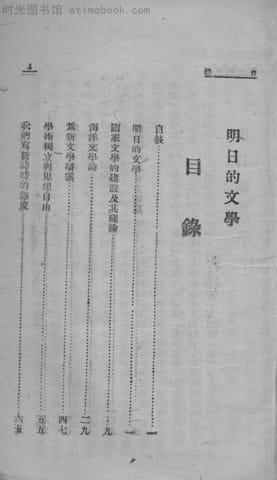 时光图书馆 - atimebook.com
明日的文學
目錄
自敍……一
明日的文學……一
國家文學的建設及其理論……九
海洋文學論……二九
為新文學……四七
學術獨立與思想自由……五五
我們寫新詩時的態度……六五